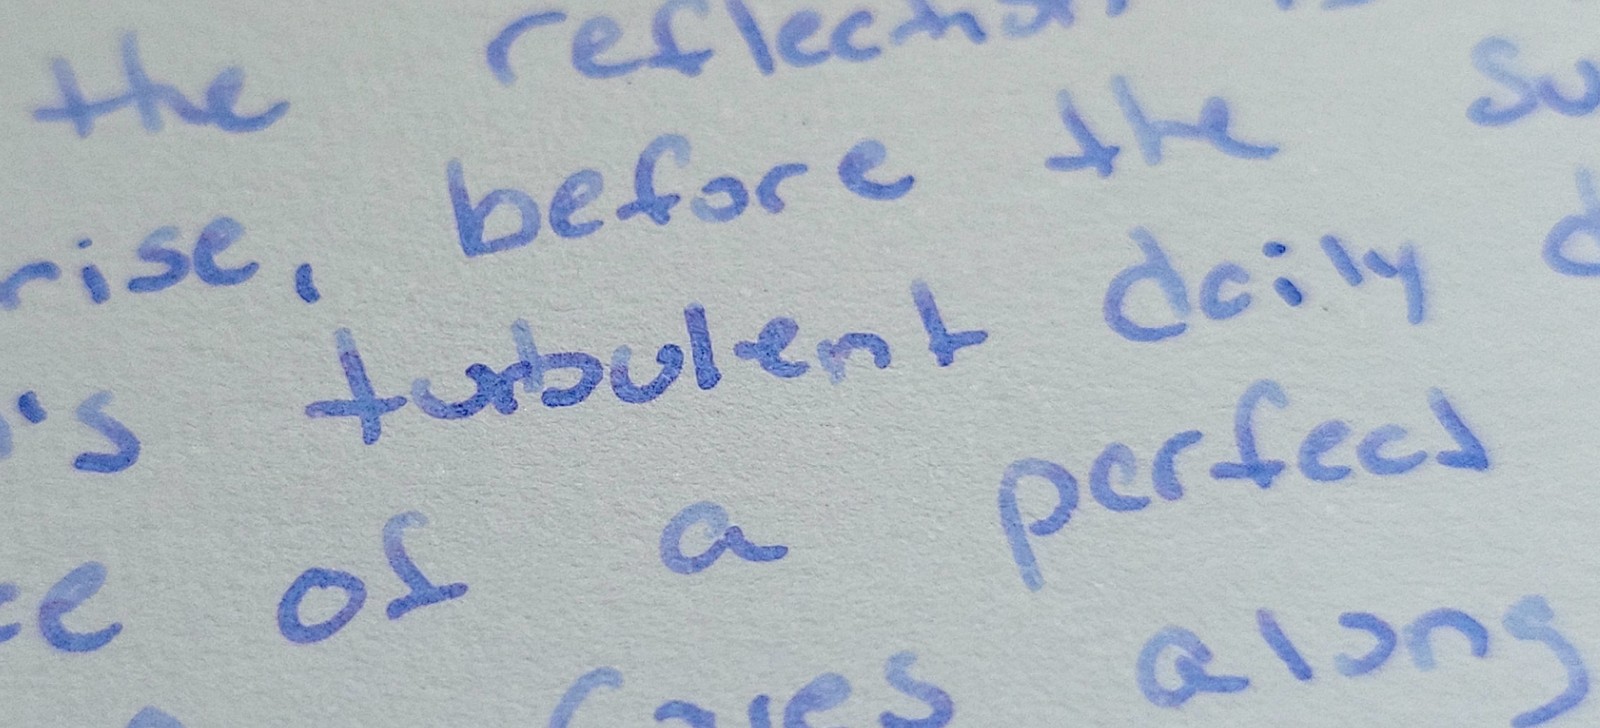 the reflection
rise, before the su
's turbulent daily d
ce of a perfect
along